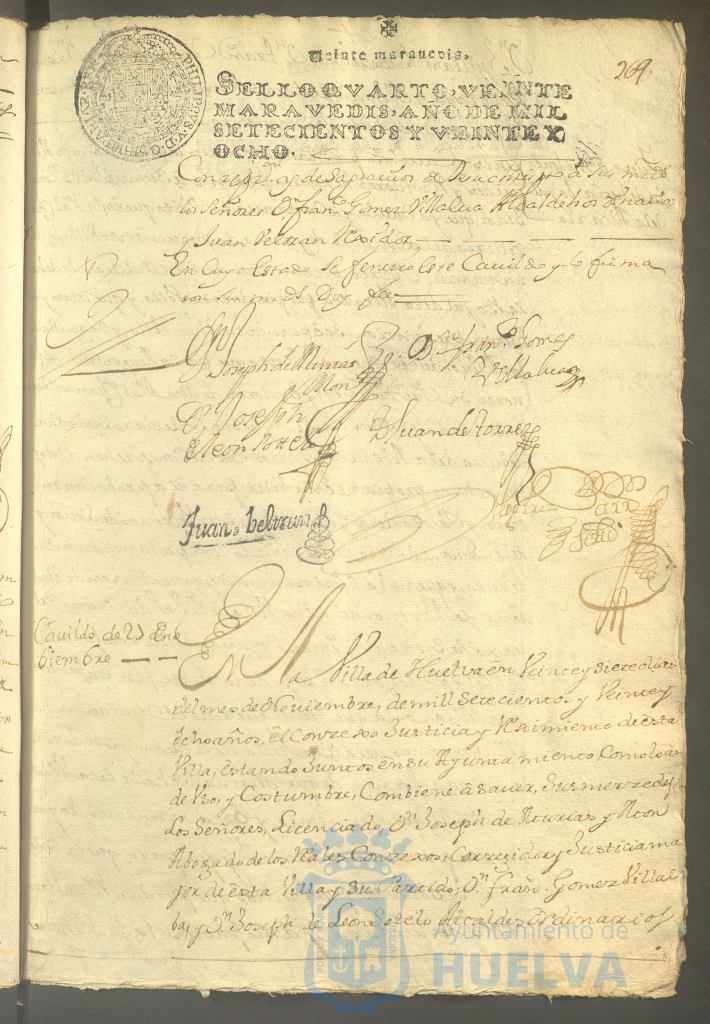 Veinte maravedis.
SELLO QVARTO, VEINTE
MARAVEDIS, AÑO DE MIL
SETECIENTOS Y VEINTE Y
OCHO.
269
PHILIPPVS V D G
los Señores Dn. Franco. Gomez Villalva Alcalde hordinario,
y Juan Veltran Rexidor
En cuyo estado se fenecio este Cavildo y lo firma
ron sus mrds. Doy fee
Joseph de
Mon
Dn. Franco. Gomez
Villalva
Dn. Joseph
de leon Sotelo
D Juan de torres
Juan, beltran
Cavildo de 27 de No
biembre
En la Villa de Huelva en Veinte y siete dias
del mes de Noviembre, de mill Setecientos y Veinte y
ocho años, el Conzexo Justicia y Reximiento de esta
Villa, estando Juntos en su Ayuntamiento Como lo an
de Vso, y Costumbre, Combiene â saver, Sus mercedes
Los Señores, Licenciado, Dn. Joseph de Asturias y Mon
Abogado de los Rales Conzexos, Correxidor y Justicia ma
yor de esta Villa y su Partido; Dn. Fran. Gomez Villal
ba, y Dn. Joseph de Leon Sotelo Alcaldes Ordinarios
Ayuntamiento de
HUELVA